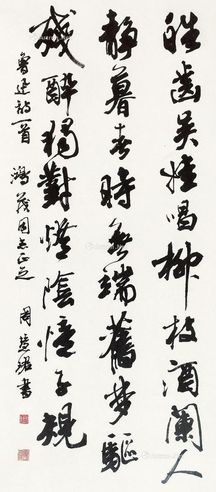 皓齒吴娃唱柳枝酒闌人
静暮春時無端舊梦驅
残醉獨對燈陰憶子規
魯迅詩一首 鴻茂同志正之
周慧珺書